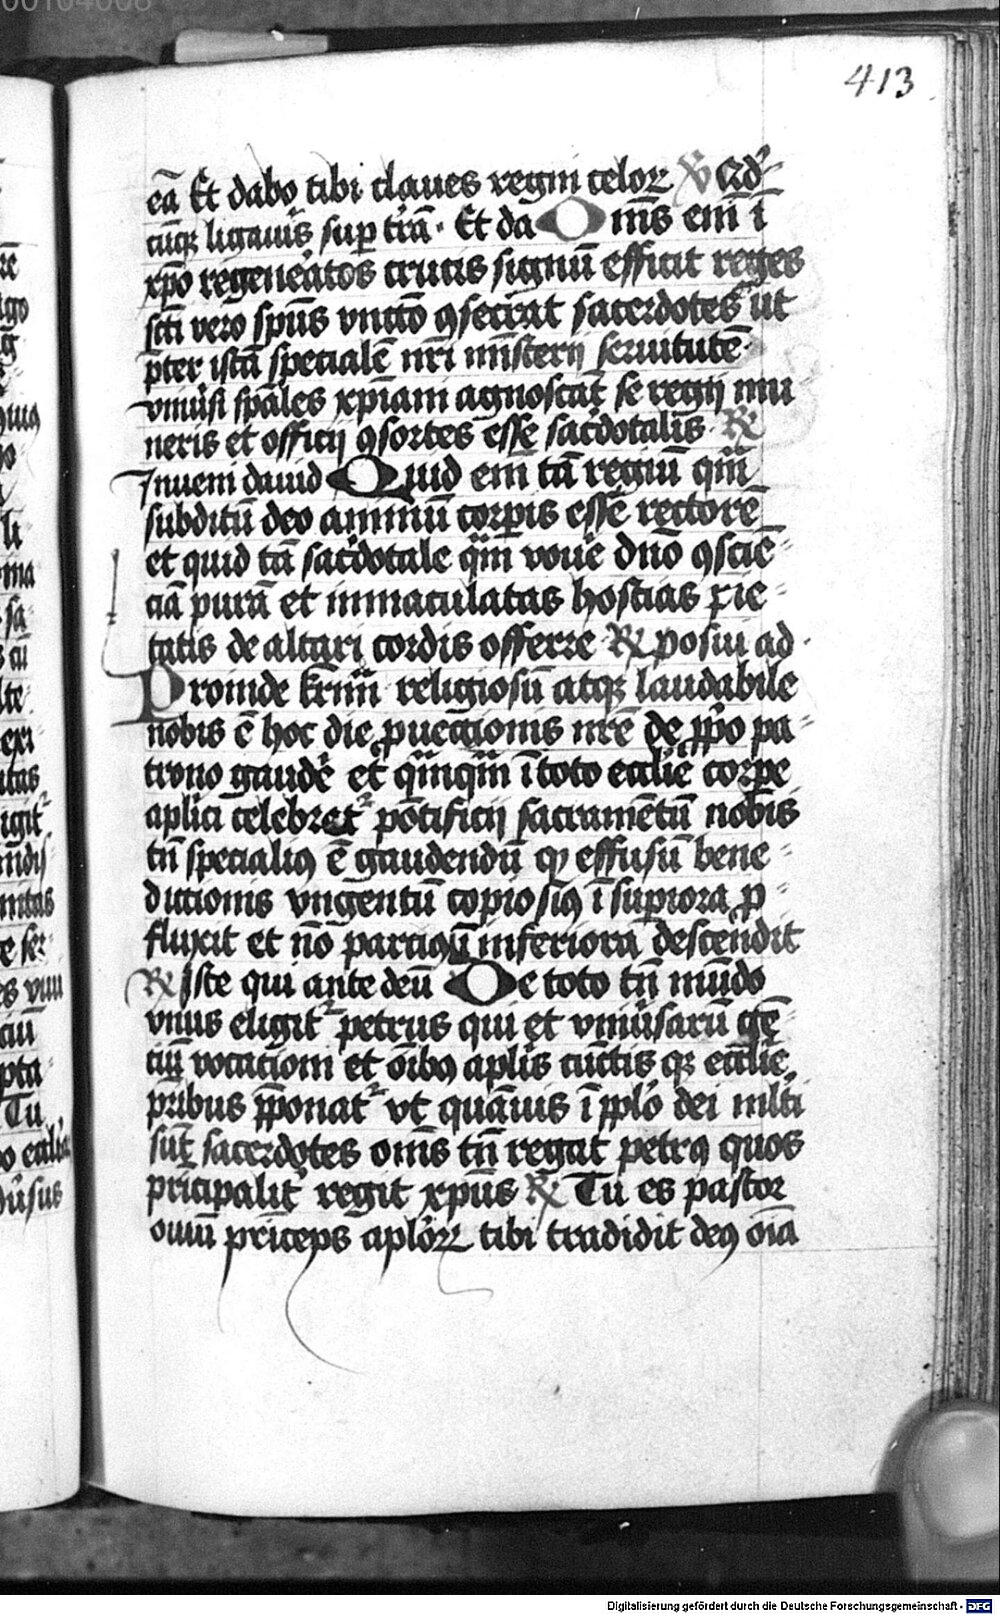 00104008
413
eā Et dabo tibi claues regni celoꝝ ℣ Qd̕
cūqꝫ ligaui᷒s suꝑ t̕rā · Et da Om̄s em̄ ī
xp̄o regene̕atos crucis signū efficit reges
sc̄ti vero sp̄us vnctō ꝯsecrat sacerdotes ut
p̄ter istā specialē nr̄i mīsterij seruitutē
vniu̕si sp̄ales xp̄iani agnoscāt se regij mu
neris et officij ꝯsortes esse sac̕dotalis ℟
Inueni dauid Quid em̄ tā regiū qm̄
subditū deo animū corꝑis esse rectorē
et quid tā sac̕dotale qm̄ voue̕ dn̄o ꝯsciē-
ciā purā et immaculatas hostias pie-
tatis de altari cordis offerre ℟ posui ad
Proinde kr̄mi religiosū atqꝫ laudabile
nobis ē hoc die ꝓuectionis nr̄e de ꝓp̄o pa-
trono gaude̕ et qm̄qm̄ ī toto eccl̄ie corpe
aplica celebret᷑ pōtificij sacramētū nobis
tn̄ specialiꝰ ē gaudendū ꝙ effusū bene-
dictionis vngentū copiosiꝰ ī supiora ꝓ-
fluxit et nō parciꝰ ī inferiora descendit
℟ Iste qui ante deū De toto tn̄ mūdo
vnus eligit᷑ petrus qui et vniu̕sarū gē-
ciū vocationi et oī̄bꝰ aplis cūctis qꝫ eccl̄ie
pribus p̄ponat᷑ vt quāuis ī pplō dei mlti
sūt sacerdotes om̄s tn̄ regat petrꝰ quos
pricipalit̕ regit xp̄us ℟ Tu es pastor
ouiū princeps aploꝝ tibi tradidit deꝰ oīa
Digitalisierung gefördert durch die Deutsche Forschungsgemeinschaft - DFG